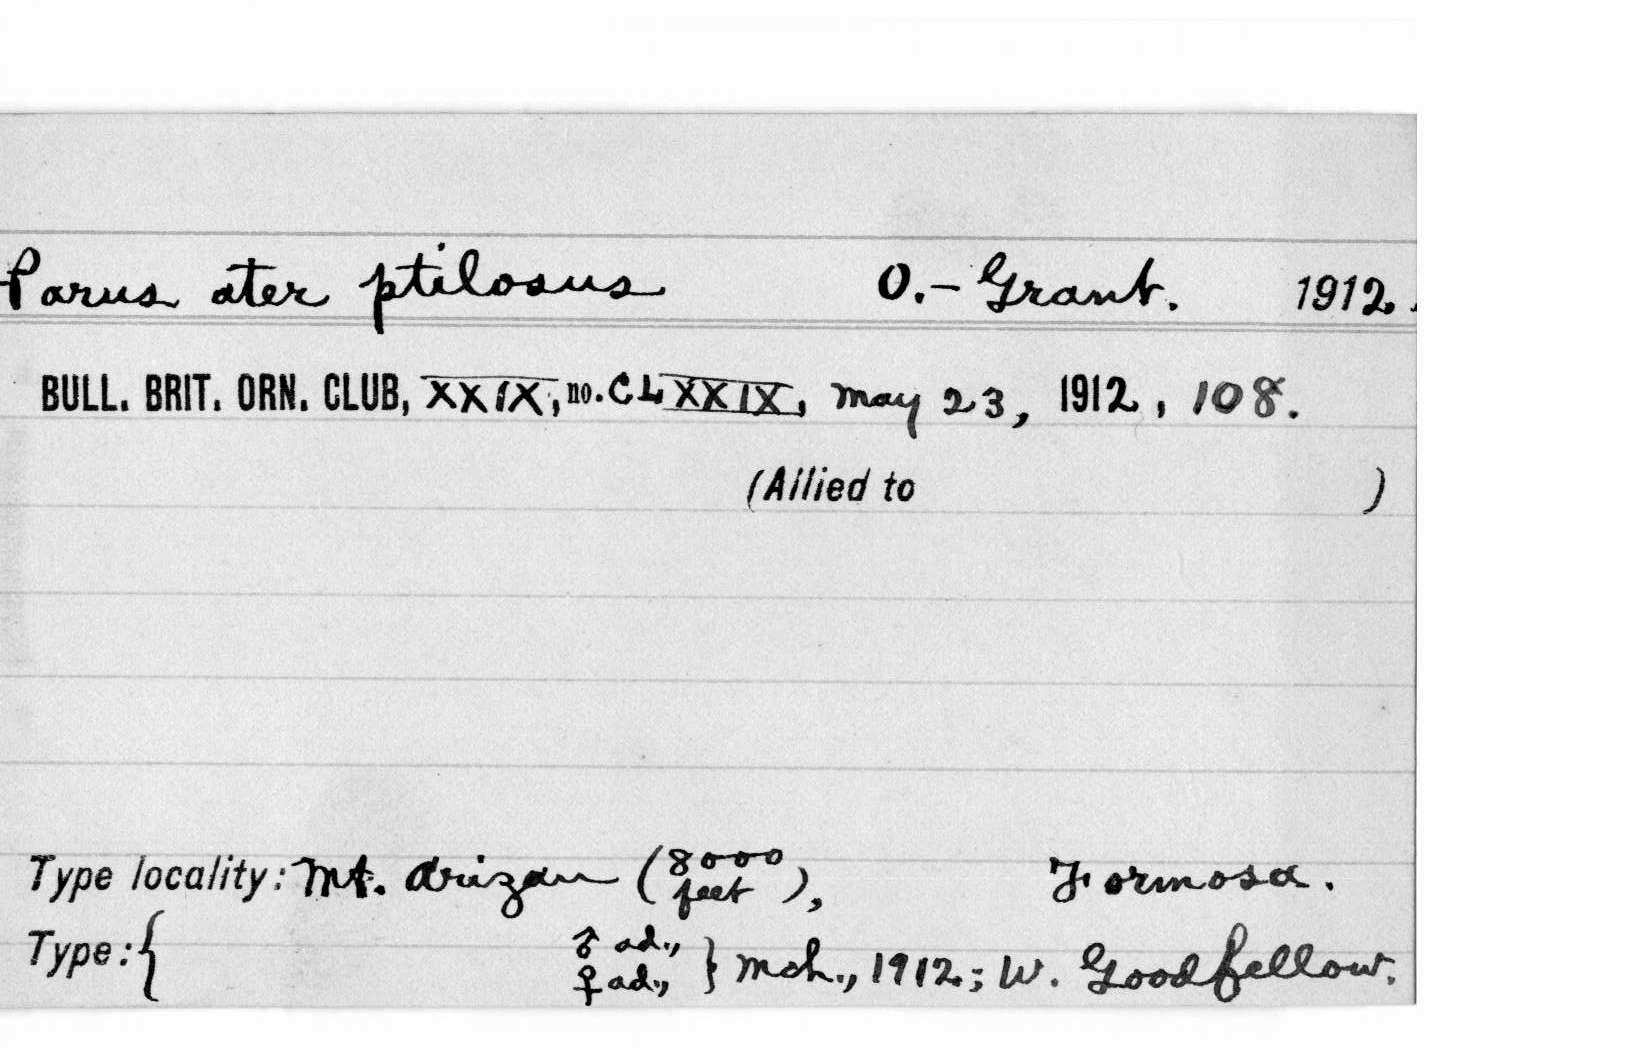 Parus ater ptilosus O.-Grant. 1912.
BULL. BRIT. ORN. CLUB, XXIX, no. CLXXIX, May 23, 1912, 108.
(Allied to )
Type locality: Mt. Arizan (8000 feet), Formosa.
Type: { ♂ ad., ♀ ad., } Mch., 1912; W. Goodfellow.